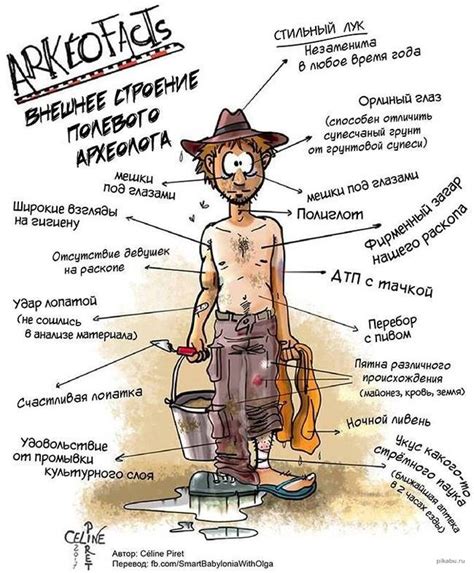 ARKÉOFACTS
ВНЕШНЕЕ СТРОЕНИЕ
ПОЛЕВОГО
АРХЕОЛОГА
СТИЛЬНЫЙ ЛУК
Незаменима
в любое время года
Орлиный глаз
(способен отличить
супесчаный грунт
от грунтовой супеси)
мешки
под глазами
мешки под глазами
Полиглот
Широкие взгляды
на гигиену
Фирменный загар
нашего раскопа
Отсутствие девушек
на раскопе
ДТП с тачкой
Удар лопатой
(не сошлись
в анализе материала)
Перебор
с пивом
Пятна различного
происхождения
(майонез, кровь, земля)
Счастливая лопатка
Ночной ливень
Удовольствие
от промывки
культурного слоя
Укус какого-то
стрёмного паука
(ближайшая аптека
в 2 часах езды)
CÉLINE
PIRET
2017
Автор: Céline Piret
Перевод: fb.com/SmartBabyloniaWithOlga
pikabu.ru